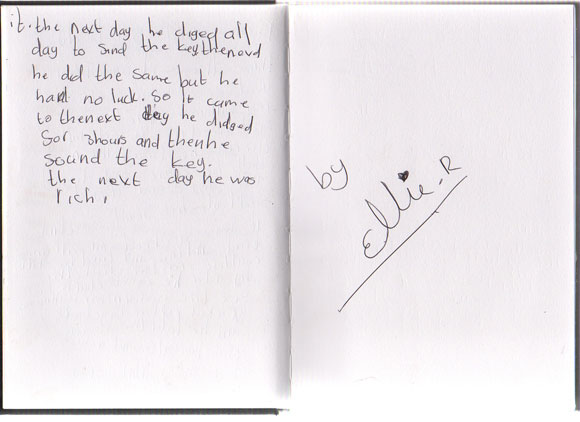 it. the next day he diged all
day to find the key thenovd
he did the same but he
hard no luck. so it came
to thenext day he didged
for 3hours and thenhe
found the key.
the next day he was
rich,
by
Ellie-R